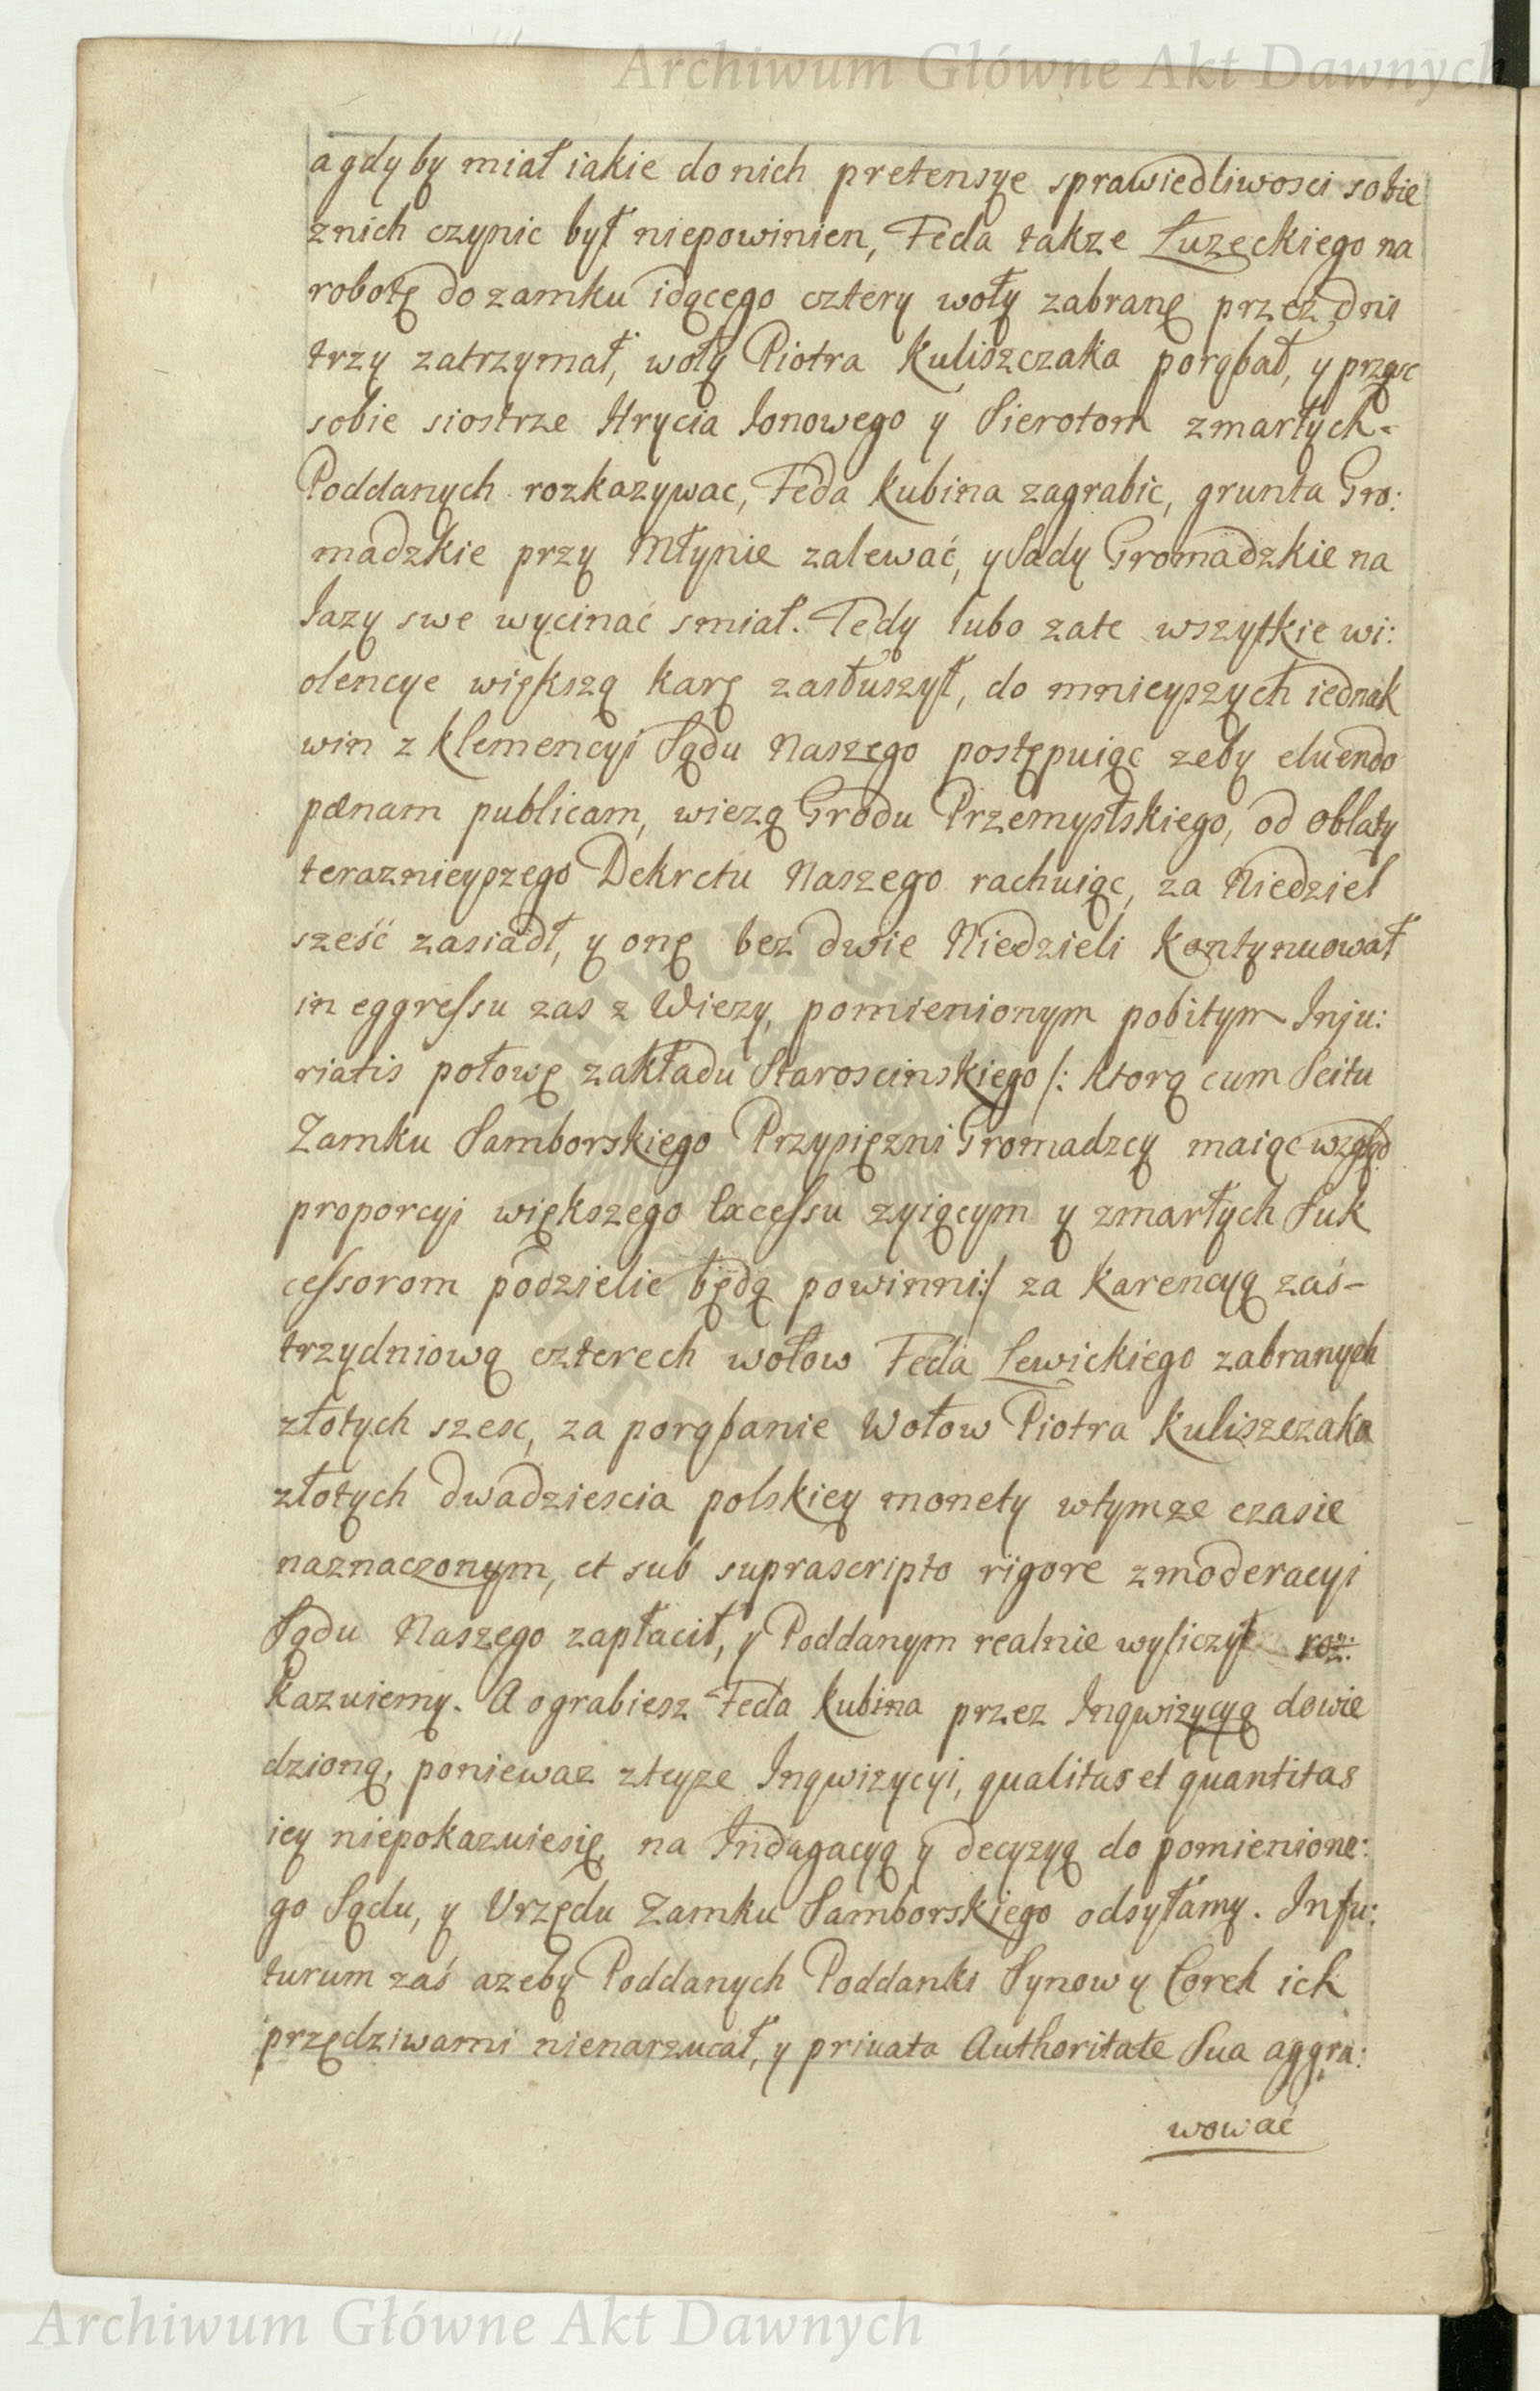 Archiwum Główne Akt Dawnych
a gdy by miał iakie do nich pretensye sprawiedliwosci sobie
z nich czynic był niepowinien, Feda takze Luzeckiego na
robotę do zamku idącego cztery woły zabranę przez dni
trzy zatrzymał, woły Piotra Kuliszczaka porąbał, y prząsc
sobie siostrze Hrycia Jonowego y Sierotom zmarłych
Poddanych rozkazywac, Feda Kubina zagrabic, grunta Gro:
madzkie przy Młynie zalewać, y Sady Gromadzkie na
Jazy swe wycinać smiał. Tedy lubo zate wszytkie wi:
olencye większą karę zasłuszył, do mnieyszych iednak
win z klemencyi Sądu Naszego postępuiąc zeby eluendo
pænam publicam, wiezą Grodu Przemyslskiego, od oblaty
teraznieyszego Dekretu Naszego rachuiąc, za Niedziel
sześć zasiadł, y onę bez dwie Niedzieli kontynuował
in eggressu zas z Wiezy, pomienionym pobitym Inju:
riatis połowę zakładu Staroscinskiego /: ktorą cum Scitu
Zamku Samborskiego Przysięzni Gromadzcy maiąc wzgląd
proporcyi większego Excessu zyiącym y zmarłych Suk
cessorom podzielic będą powinni:/ za karencyą zaś-
trzydniową czterech wołow Feda Lewickiego zabranych
złotych szesc, za porąbanie Wołow Piotra Kuliszczaka
złotych dwadziescia polskiey monety wtymze czasie
naznaczonym, et sub suprascripto rigore zmoderacyi
Sądu Naszego zapłacił, y Poddanym realnie wyliczył roz:
kazuiemy. A o grabiesz Feda Kubina przez Inqwizycyą dowie
dzioną, poniewaz zteyze Inqwizycyi, qualitas et quantitas
iey niepokazuiesię, na Indagacyą y decyzyą do pomienione:
go Sądu, y Vrzędu Zamku Samborskiego odsyłamy. In fu:
turum zaś azeby Poddanych Poddanki Synow y Corek ich
przędziwami nienarzucał, y priuata Authoritate Sua aggra:
wować
Archiwum Główne Akt Dawnych